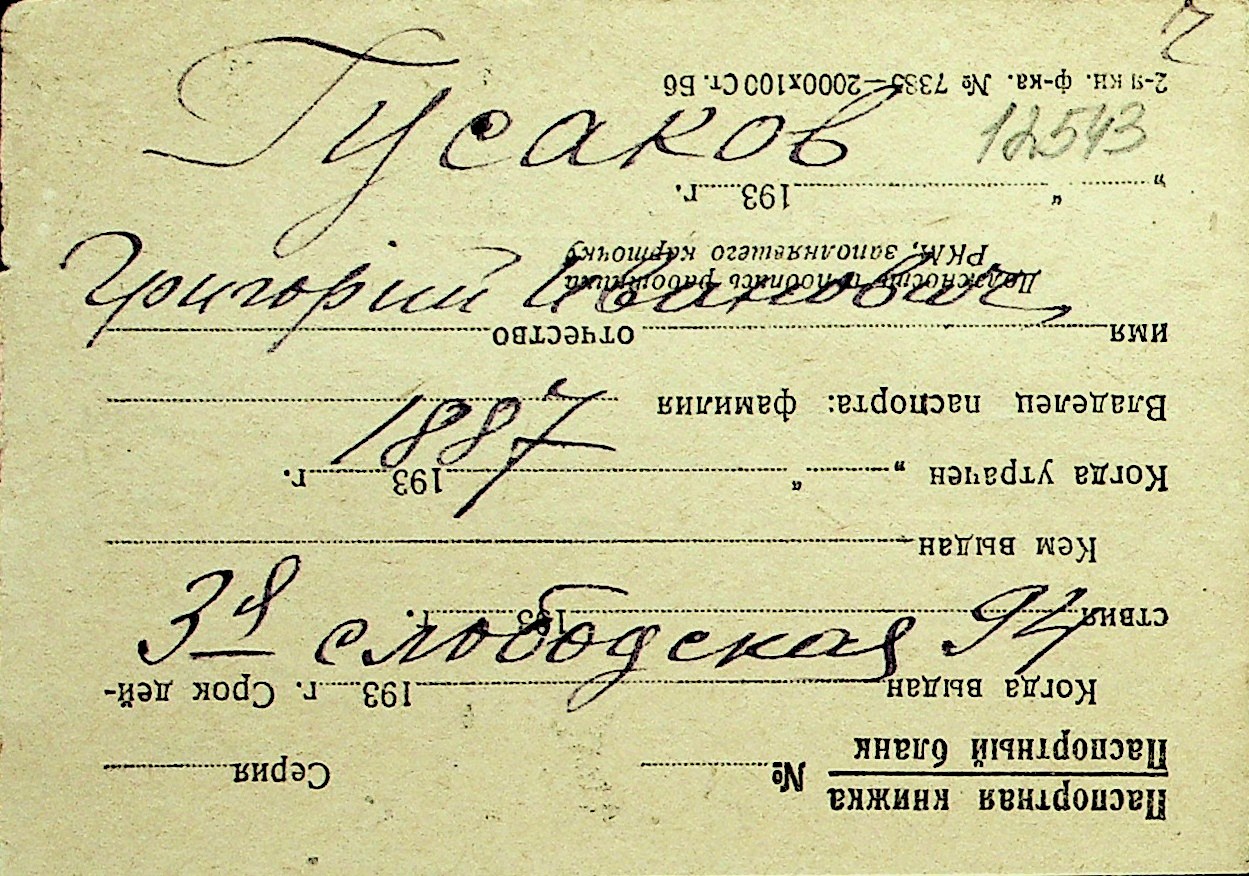 Гусаков
12543
Григорий Иванович
1887
3я слободская 94
Паспортная книжка
Паспортный бланк
№ Серия
Когда выдан 193 г. Срок дей-
ствия 193 г.
Кем выдан
Когда утрачен „ “ 193 г.
Владелец паспорта: фамилия
имя отчество
Должность и подпись работника
РКМ, заполнявшего карточку
„ “ 193 г.
2-я кн. ф-ка. № 7385—2000x100 Ст. Б6